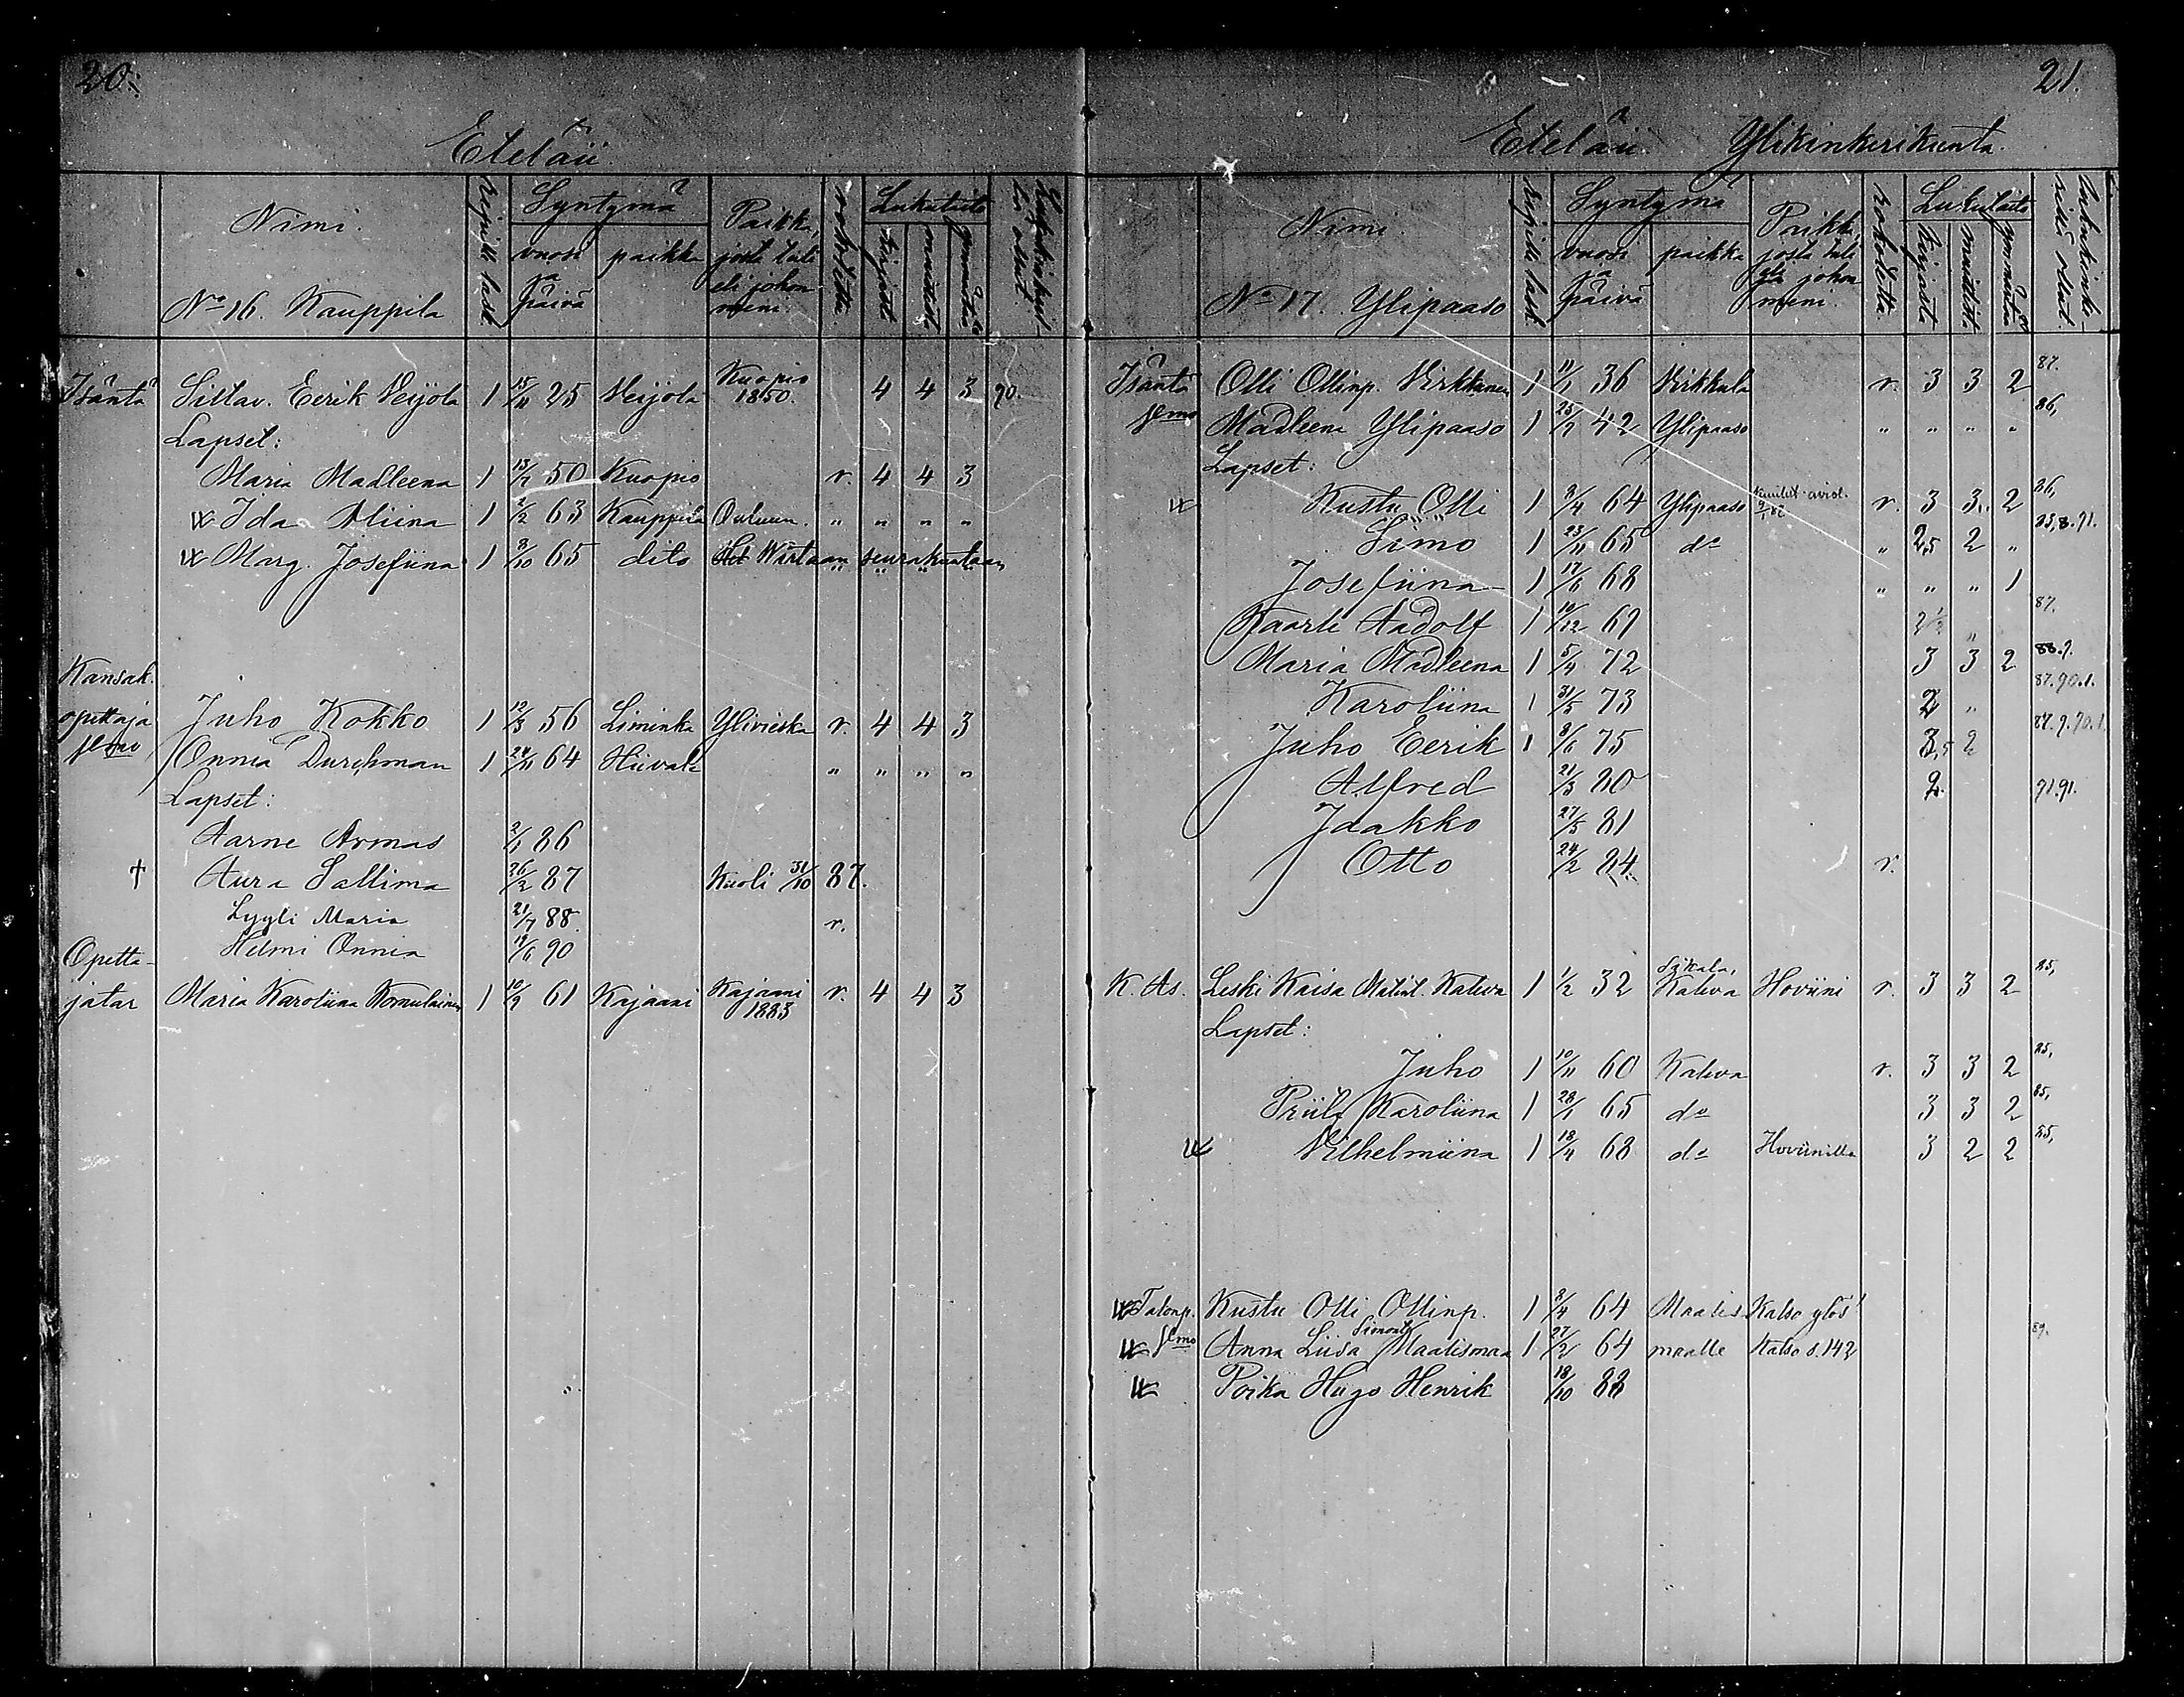 20.
Eteläii.
Nimi.
No 16. Kauppila
Syntymä
vuosi ja päivä
paikka
Paikka, josta tuli eli johon meni.
rokotettu.
Lukutaito
kirjasta
muistista
Isäntä Siltav. Eerik Veijola 1 15/11 25 Veijola Kuopio 1850. 4 4 3 90.
Lapset:
Maria Madleena 1 13/7 50 Kuopio r. 4 4 3
Ida Aliina 1 2/2 63 Kauppila Ouluun. " " " "
Marg. Josefiina 1 8/10 65 dito Wirtaan seurakuntaan
Kansak.
opettaja Juho Kokko 1 12/3 56 Liminka Ylivieska r. 4 4 3
Onnia Durchman 1 24/11 64 Hiivala " " " "
Lapset:
Aarne Armas 2/1 86
† Aura Sallima 26/2 87 Kuoli 31/10 87.
Lyyli Maria 21/7 88. r.
Helmi Onnia 19/6 90
Opetta-
jatar Maria Karoliina Komulainen 1 10/9 61 Kajaani Kajaani 1885 r. 4 4 3
21.
Eteläii. Ylikinkerikunta.
Nimi.
No 17. Ylipaaso
Syntymä
vuosi ja päivä
paikka
Paikka, josta tuli eli johon meni.
rokotettu.
Lukutaito
kirjasta
muistist.
Isäntä Olli Ollinp. Virkkunen 1 11/1 36 Virkkula r. 3 3 2 87.
Madleena Ylipaaso 1 25/7 42 Ylipaaso " " " " 86,
Lapset:
Kustu Olli 1 8/4 64 Ylipaaso r. 3 3 2 86,
Simo 1 23/11 65 do " 2,5 2 "
Josefiina 1 17/6 68 " " " 1
Kaarle Aadolf 1 10/12 69 2½ " 87.
Maria Madleena 1 5/4 72 3 3 2 88.9.
Karoliina 1 31/5 73 2 " 87.90.1.
Juho Eerik 1 8/6 75 3,5 2 87.9.90.1
Alfred 21/3 80 2. 91.91.
Jaakko 27/5 81
Otto 24/2 84. r.
K. As. Leski Kaisa Matint. Kateva 1 1/2 32 Kateva Hoviini r. 3 3 2 85,
Lapset:
Juho 1 10/11 60 Kateva r. 3 3 2 85,
Priita Karoliina 1 28/1 65 do 3 3 2 85,
Vilhelmiina 1 18/4 68 do Hoviinilla 3 2 2 85,
Talonp. Kustu Olli Ollinp. 1 8/4 64 Maalis Katso ylös!
Anna Liisa Simont. Maalismaa 1 27/2 64 maalle Katso s. 142 89.
Poika Hugo Henrik 18/10 88